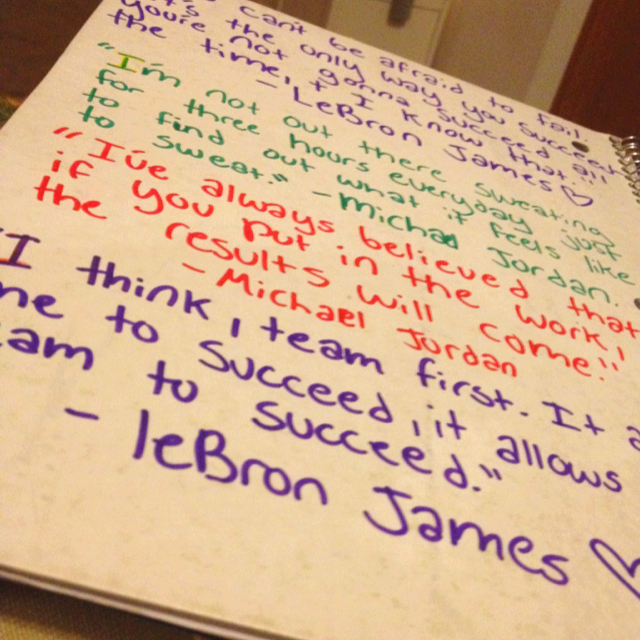 can't be afraid to fail
It's the only way you succeed
you're not gonna succeed all
the time, + I know that
- LeBron James ♡
"I'm not out there sweating
for three hours everyday just
to find out what it feels like
to sweat." - Michael Jordan.
"I've always believed that
if you put in the work,
the results will come."
- Michael Jordan
"I think, team first. It a
ne to succeed, it allows
am to succeed."
- leBron James ♡